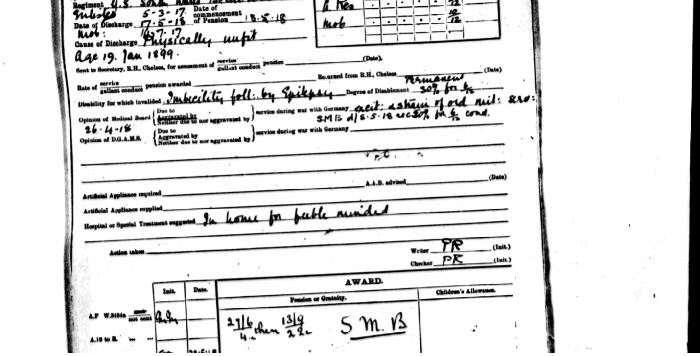 Regiment U.S.
Enlisted 5-3-17 Date of commencement of Pension 18.5.18
Date of Discharge 17-5-18
Mob: 16.7.17
Cause of Discharge Physically unfit
Age 19. Jan 1899.
Mob
Sent to Secretary, R.H., Chelsea, for assessment of service gallant conduct pension (Date).
Rate of service gallant conduct pension awarded Returned from R.H., Chelsea (Date)
Permanent
Disability for which invalided Imbecility foll: by Epilepsy Degree of Disablement 30% for ½
Opinion of Medical Board Due to Aggravated by Neither due to nor aggravated by service during war with Germany excit: & strain of ord mil: serv:
26-4-18 SMB d/8.5.18 rec 30% for ½ cond.
Opinion of D.G.A.M.S. Due to Aggravated by Neither due to nor aggravated by service during war with Germany
Artificial Appliance required A.A.B. advised (Date)
Artificial Appliance supplied
Hospital or Special Treatment suggested In home for feeble minded
Action taken
Writer PR (Init.)
Checker PR (Init.)
Init. Date. AWARD.
Pension or Gratuity. Children's Allowance.
A.F W.3484a not sent
27/6 then 13/9 S M. B